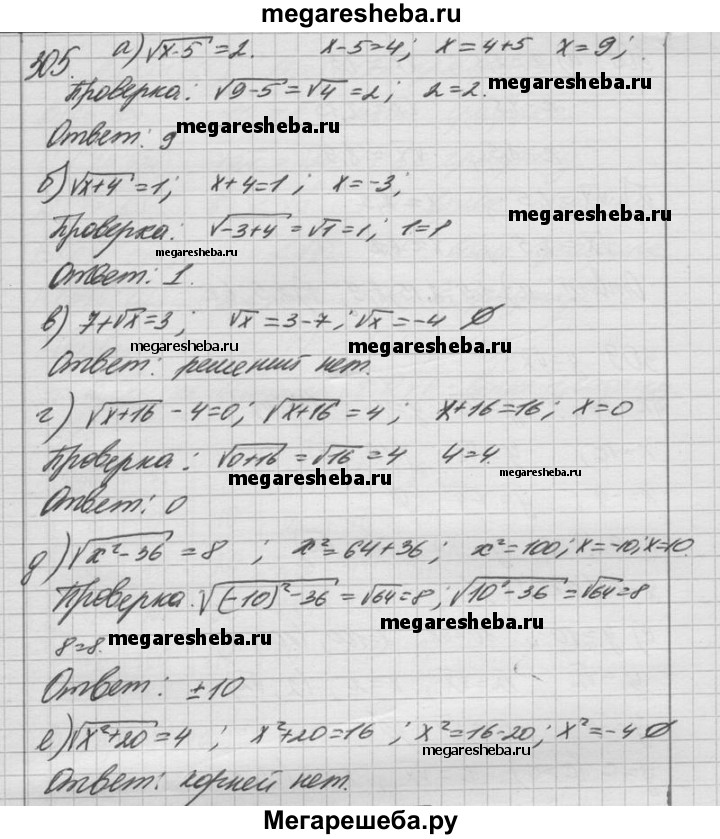 megaresheba.ru
305. а) √x-5 = 2. x-5=4; x=4+5 x=9;
Проверка: √9-5 = √4 = 2; 2=2.
megaresheba.ru
Ответ: 9
megaresheba.ru
б) √x+4 = 1; x+4=1; x=-3;
megaresheba.ru
Проверка: √-3+4 = √1 = 1; 1=1
megaresheba.ru
Ответ: 1.
в) 7+√x=3; √x=3-7; √x=-4 ∅
megaresheba.ru megaresheba.ru
Ответ: решений нет.
г) √x+16 - 4=0; √x+16 = 4; x+16=16; x=0
Проверка: √0+16 = √16 = 4 4=4.
megaresheba.ru megaresheba.ru
Ответ: 0
д) √x²-36 = 8; x²=64+36; x²=100; x=-10; x=10.
Проверка. √(-10)²-36 = √64=8; √10²-36 = √64=8
megaresheba.ru
8=8.
megaresheba.ru
Ответ: ±10
е) √x²+20 = 4; x²+20=16; x²=16-20; x²=-4 ∅
megaresheba.ru
Ответ: корней нет.
Мегарешеба.ру